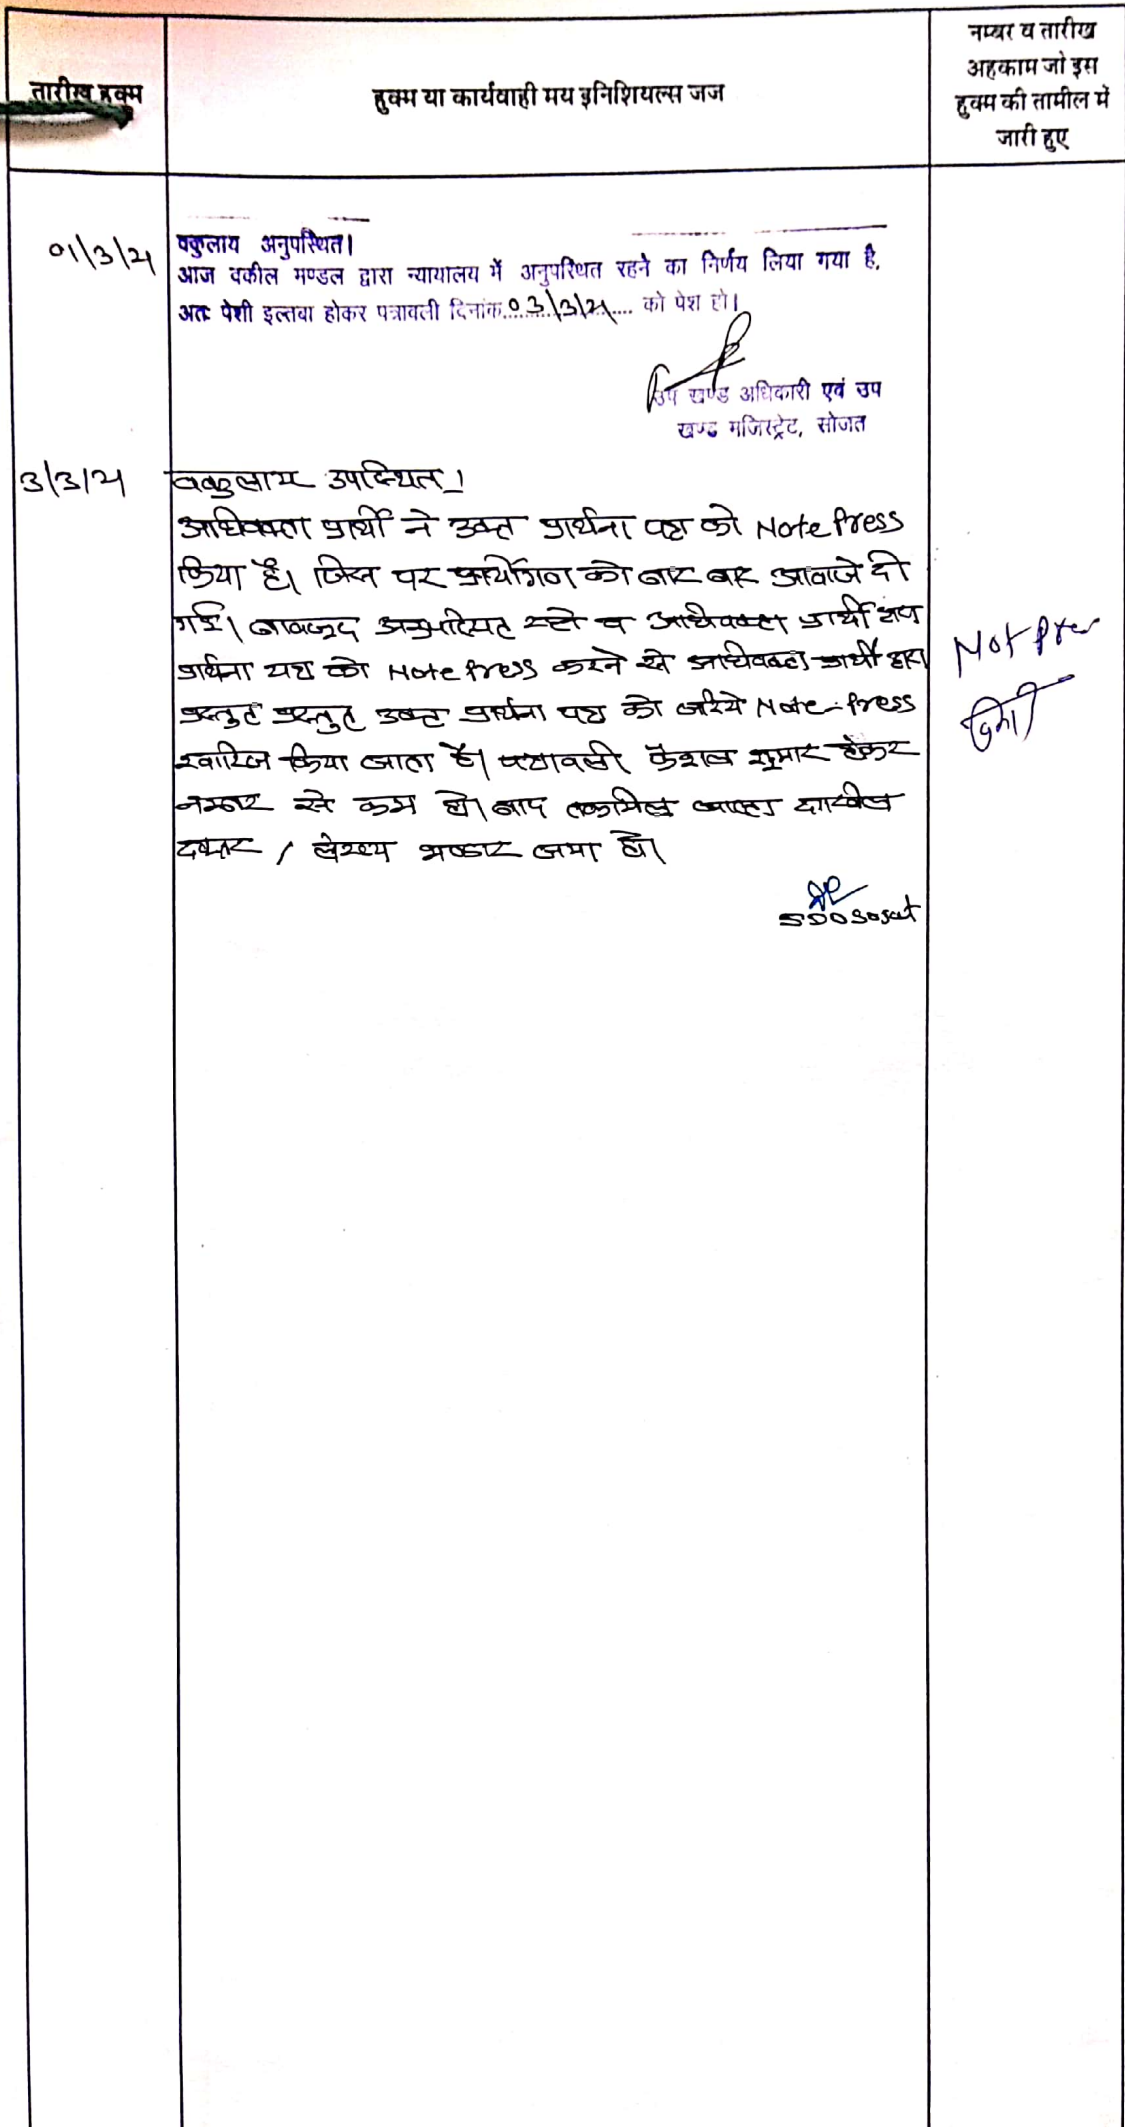 तारीख हुक्म
हुक्म या कार्यवाही मय इनिशियल्स जज
नम्बर व तारीख
अहकाम जो इस
हुक्म की तामील में
जारी हुए
01/3/21
वकुलाय अनुपस्थित।
आज वकील मण्डल द्वारा न्यायालय में अनुपस्थित रहने का निर्णय लिया गया है,
अतः पेशी इल्तवा होकर पत्रावली दिनांक 03/3/21 को पेश हो।
उप खण्ड अधिकारी एवं उप
खण्ड मजिस्ट्रेट, सोजत
3/3/21
वकुलाय उपस्थित।
अधिवक्ता प्रार्थी ने उक्त प्रार्थना पत्र को Note Press
किया है। जिस पर प्रार्थीगण को बार बार आवाजे दी
गई। बावजूद अनुपस्थित रहने व अधिवक्ता प्रार्थी
प्रार्थना पत्र को Note Press करने से अधिवक्ता प्रार्थी द्वारा
प्रस्तुत प्रस्तुत उक्त प्रार्थना पत्र को जरिये Note-Press
खारिज किया जाता है। पत्रावली फैशल शुमार होकर
नम्बर से कम हो। बाद तकमिल जाब्ता दाखिल
दफ्तर / लेख्य भण्डार जमा हो।
SDO Sojat
Not Pres